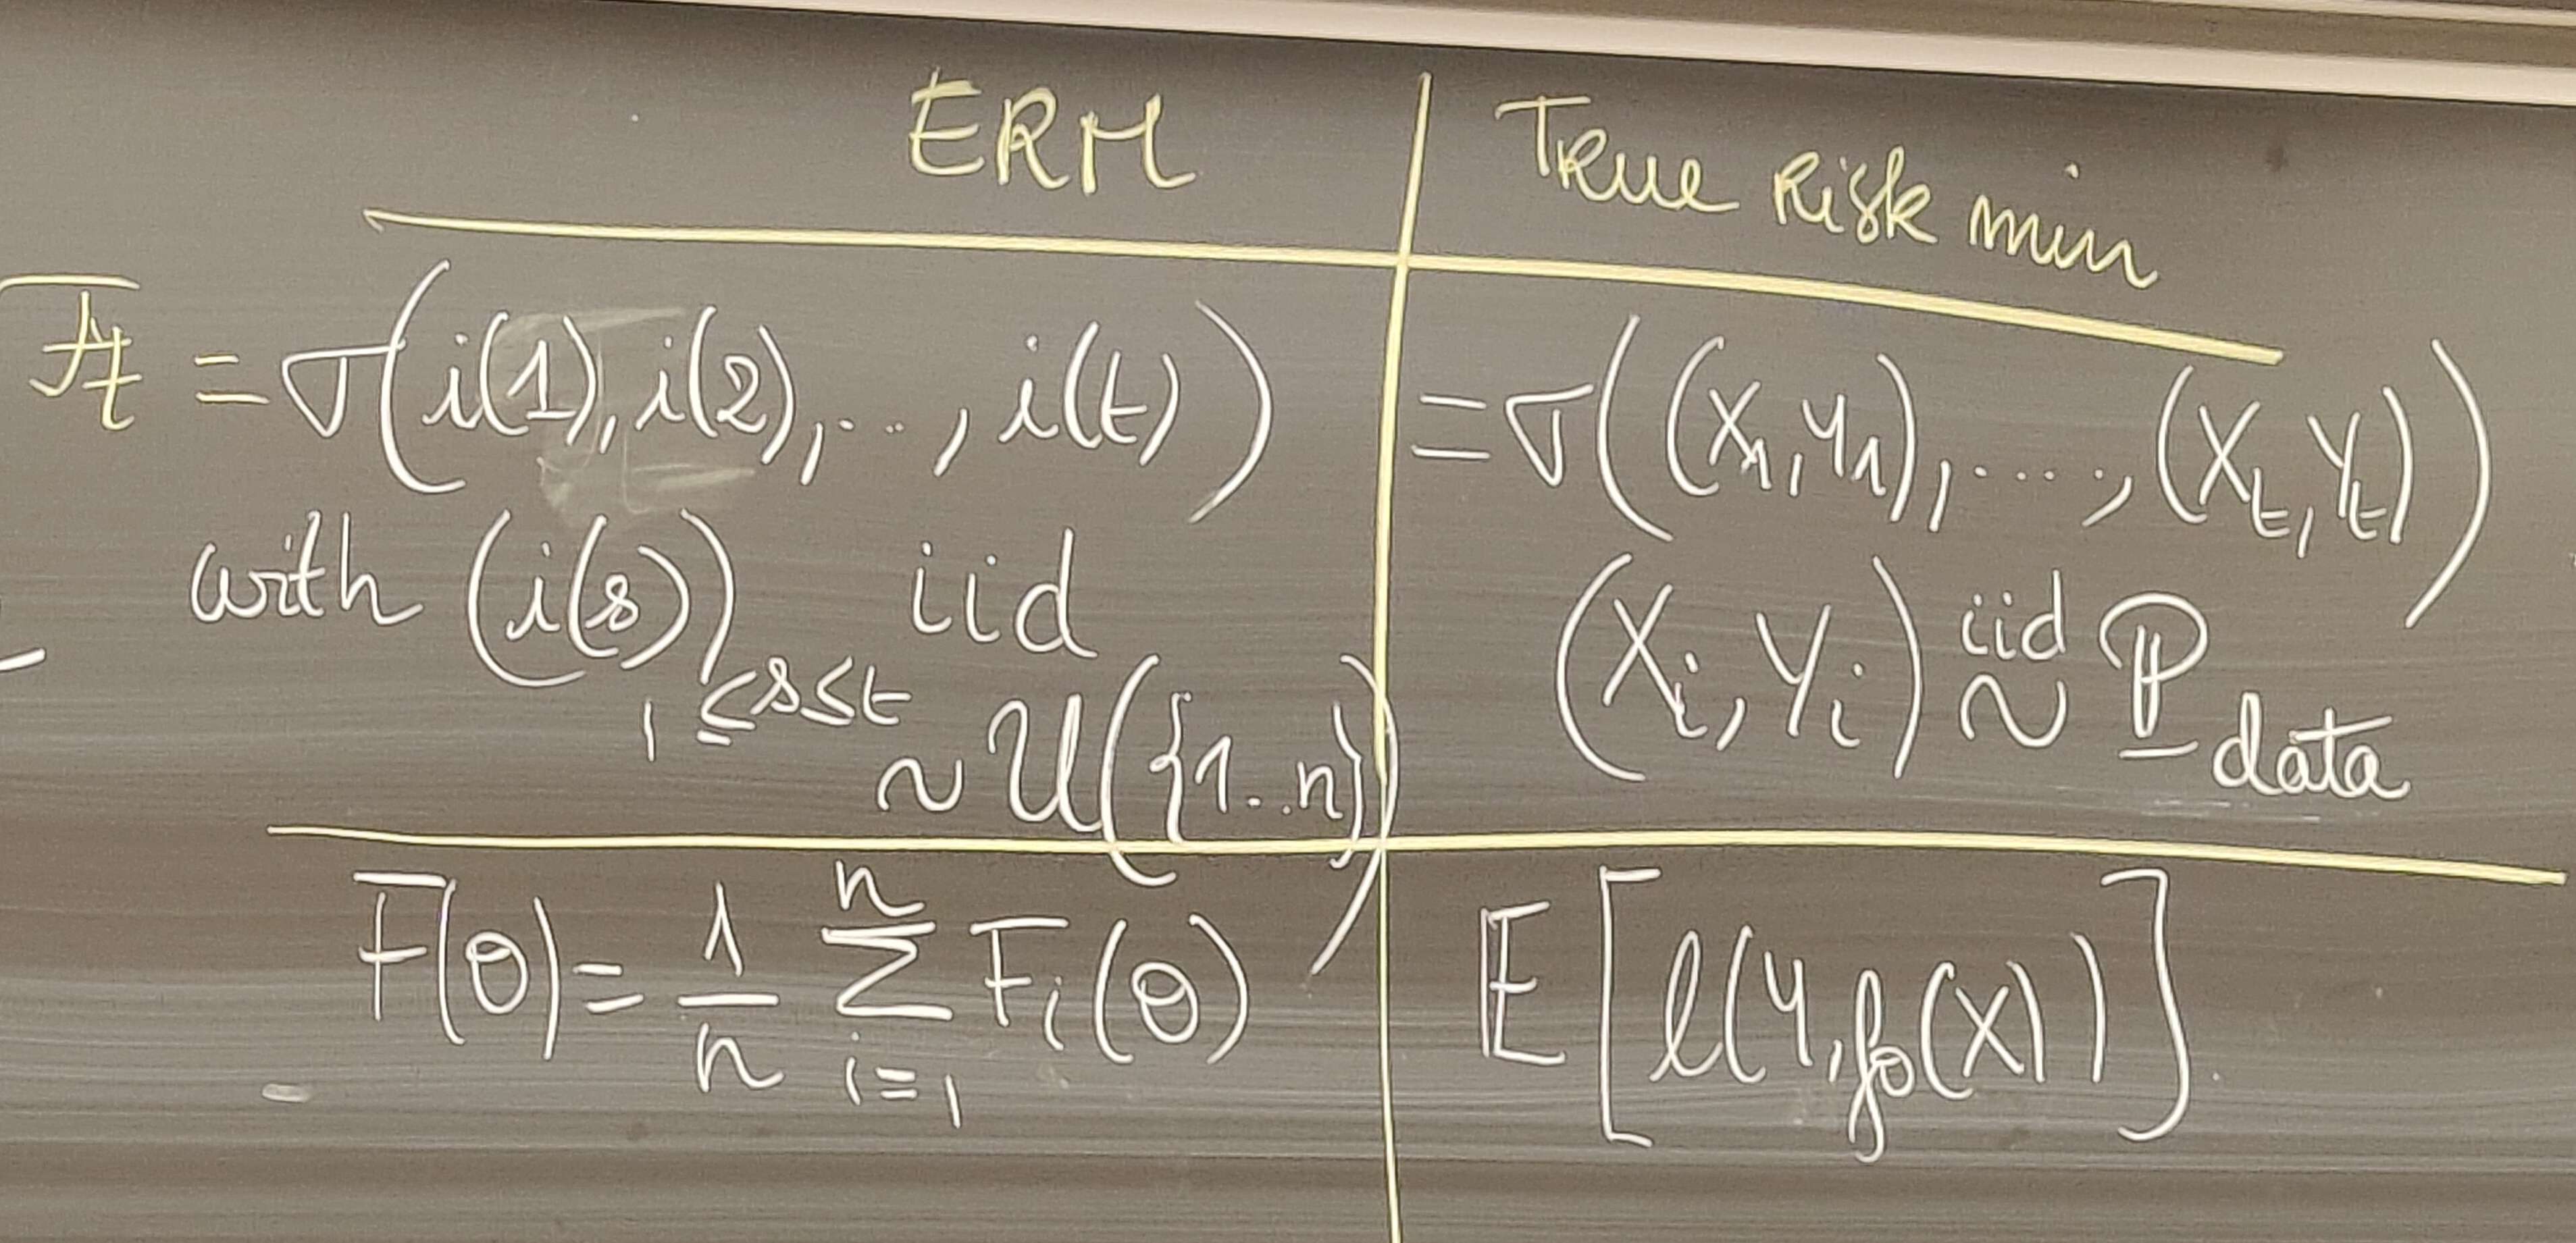 ERM
True Risk min
ℱt = σ(i(1), i(2), ..., i(t))
with (i(s))1≤s≤t iid
~ U({1..n})
= σ((X1,Y1), ...., (Xt,Yt))
(Xi, Yi) iid ~ ℙdata
F(θ) = 1/n Σ i=1 n Fi(θ)
𝔼[ℓ(Y, fθ(X))]